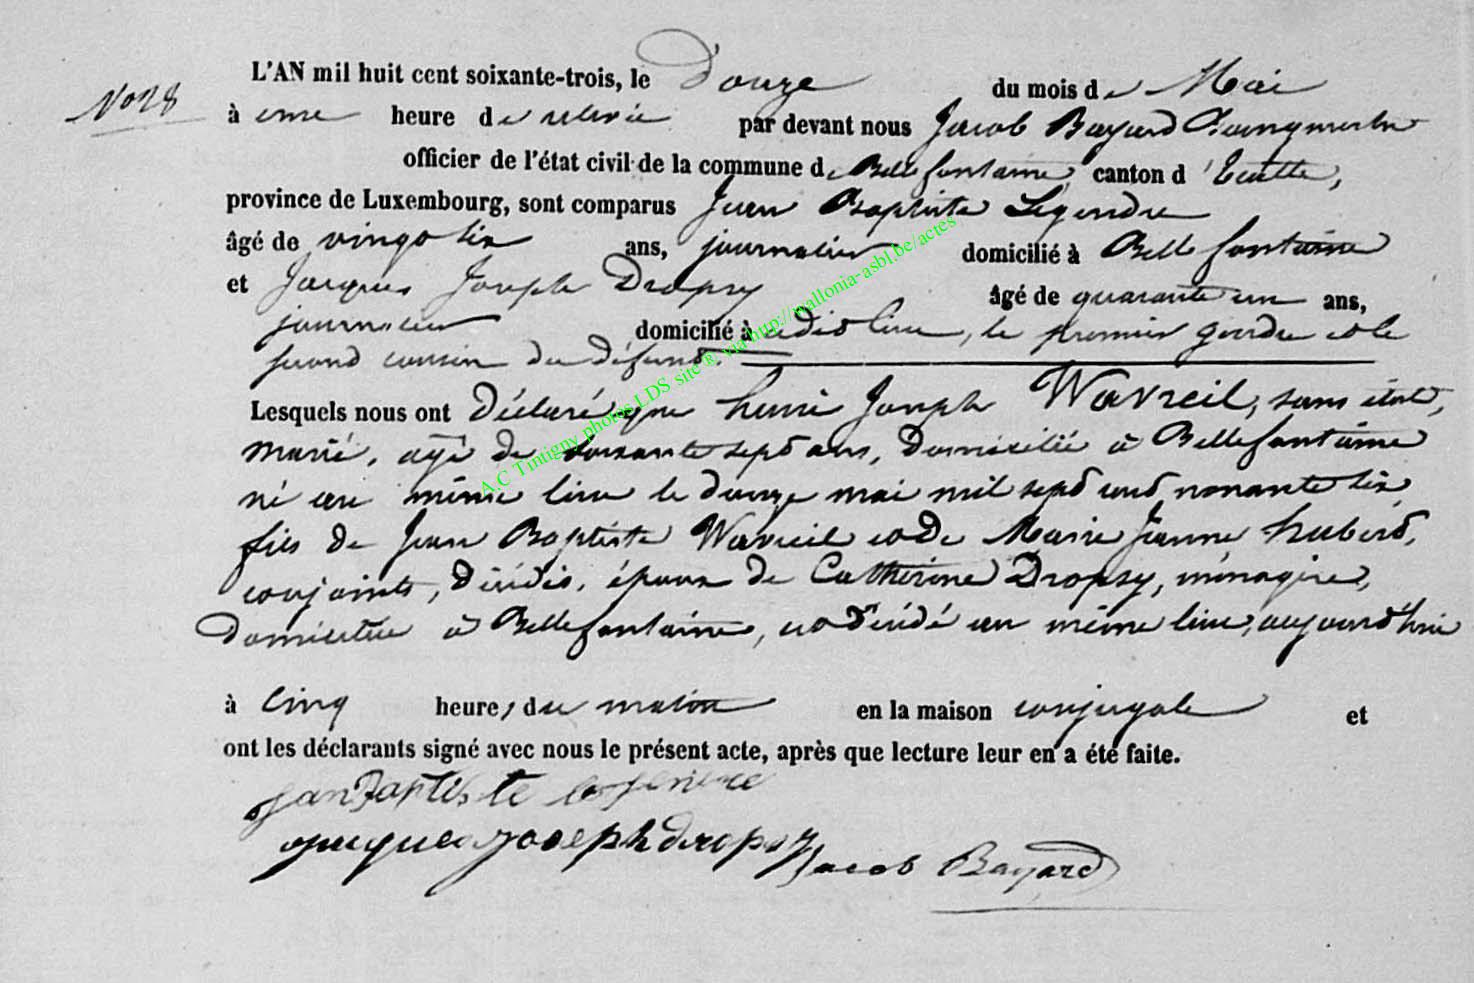 N° 28
L'AN mil huit cent soixante-trois, le Douze du mois de Mai
à une heure de relevée par devant nous Jacob Bayard Bourgmestre
officier de l'état civil de la commune de Bellefontaine canton d'Etalle,
province de Luxembourg, sont comparus Jean Baptiste Legendre
âgé de vingt six ans, journalier domicilié à Bellefontaine
et Jacques Joseph Dropsy âgé de quarante un ans,
journalier domicilié à udit lieu, le premier gendre et le
second cousin du défunt.
Lesquels nous ont Déclaré que henri Joseph Wavreil, sans état,
marié, agé de soixante sept ans, Domicilié à Bellefontaine
né au même lieu le douze mai mil sept cent nonante six
fils de Jean Baptiste Wavreil et de Marie Jeanne hubert,
conjoints, Décédés, époux de Catherine Dropsy, ménagère,
Domiciliée à Bellefontaine, est décédé au même lieu, aujourd'hui
à Cinq heures du matin en la maison conjugale et
ont les déclarants signé avec nous le présent acte, après que lecture leur en a été faite.
jan Baptiste
jacques joseph dropsy
Jacob Bayard
A.C Tintigny photos LDS site ® via http://wallonia-asbl.be/actes